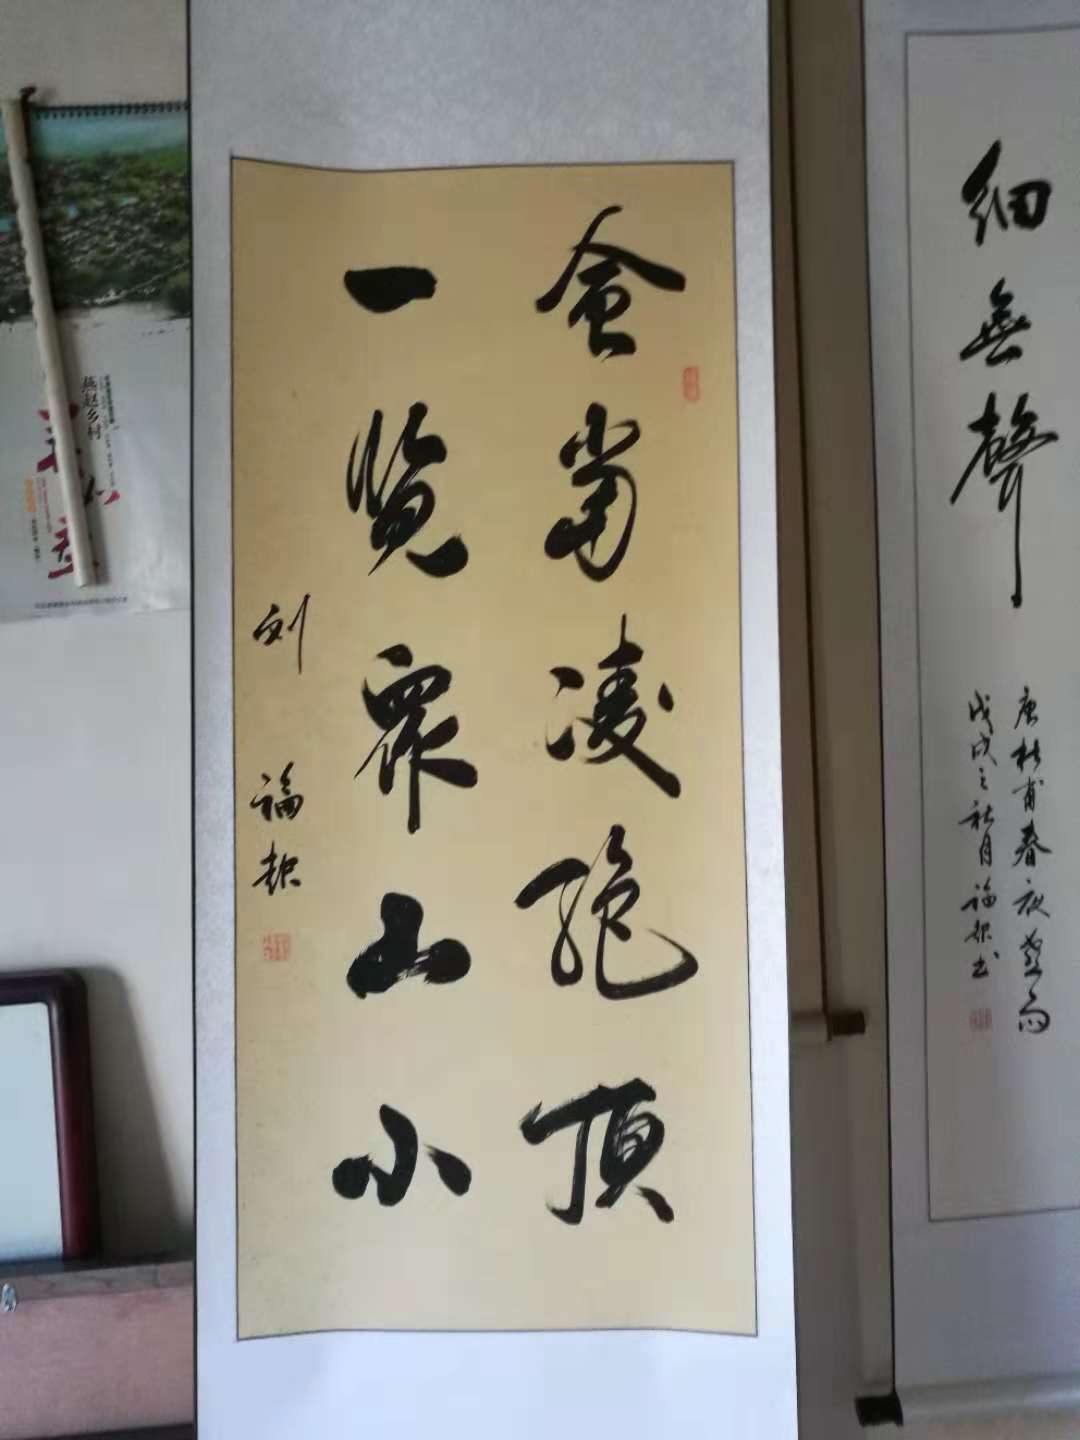 细無聲
唐杜甫春夜喜雨
戊戌之秋月福 书
會當凌绝顶
一览眾山小
刘福
燕赵乡村